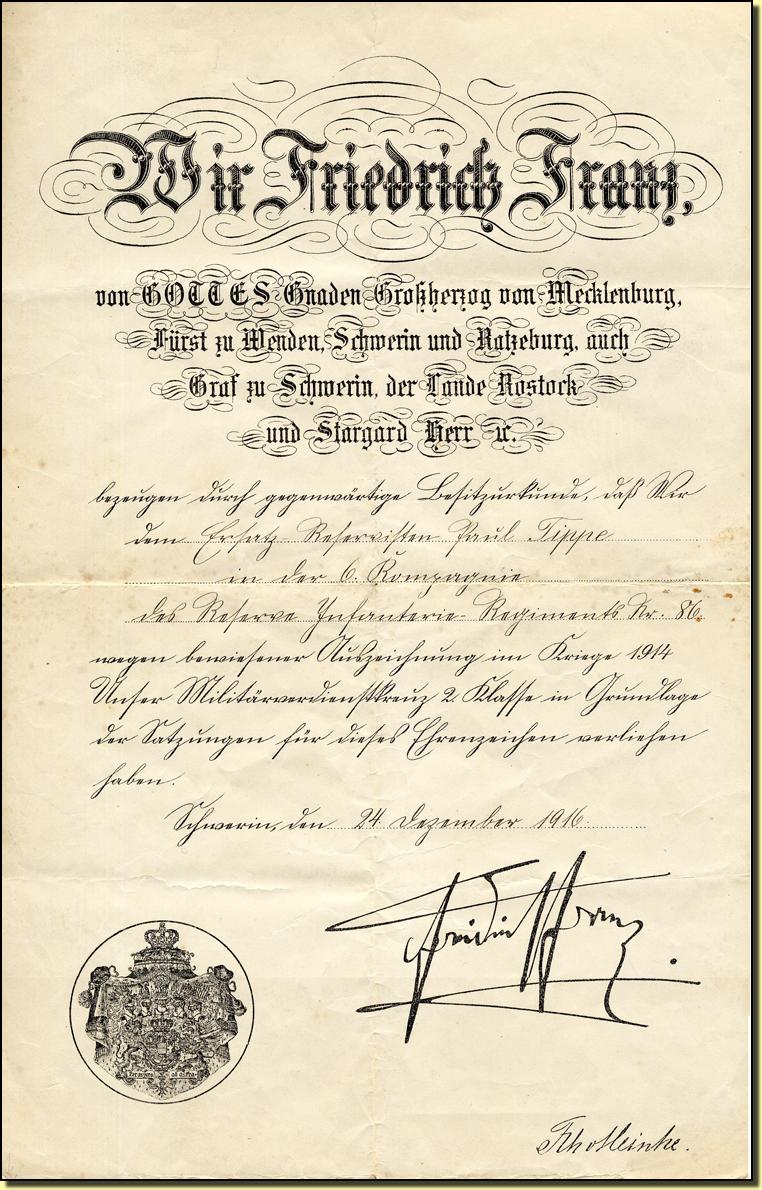 Wir Friedrich Franz,
von GOTTES Gnaden Großherzog von Mecklenburg,
Fürst zu Wenden, Schwerin und Ratzeburg, auch
Graf zu Schwerin, der Lande Rostock
und Stargard Herr ꝛc.
bezeugen durch gegenwärtige Besitzurkunde, daß Wir
dem Ersatz-Reservisten Paul Tippe
in der 6. Kompagnie
des Reserve Infanterie Regiments Nr. 86.
wegen bewiesener Auszeichnung im Kriege 1914
Unser Militärverdienstkreuz 2. Klasse in Grundlage
der Satzungen für dieses Ehrenzeichen verliehen
haben.
Schwerin, den 24. Dezember 1916.
Friedrich Franz.
Per aspera ad astra